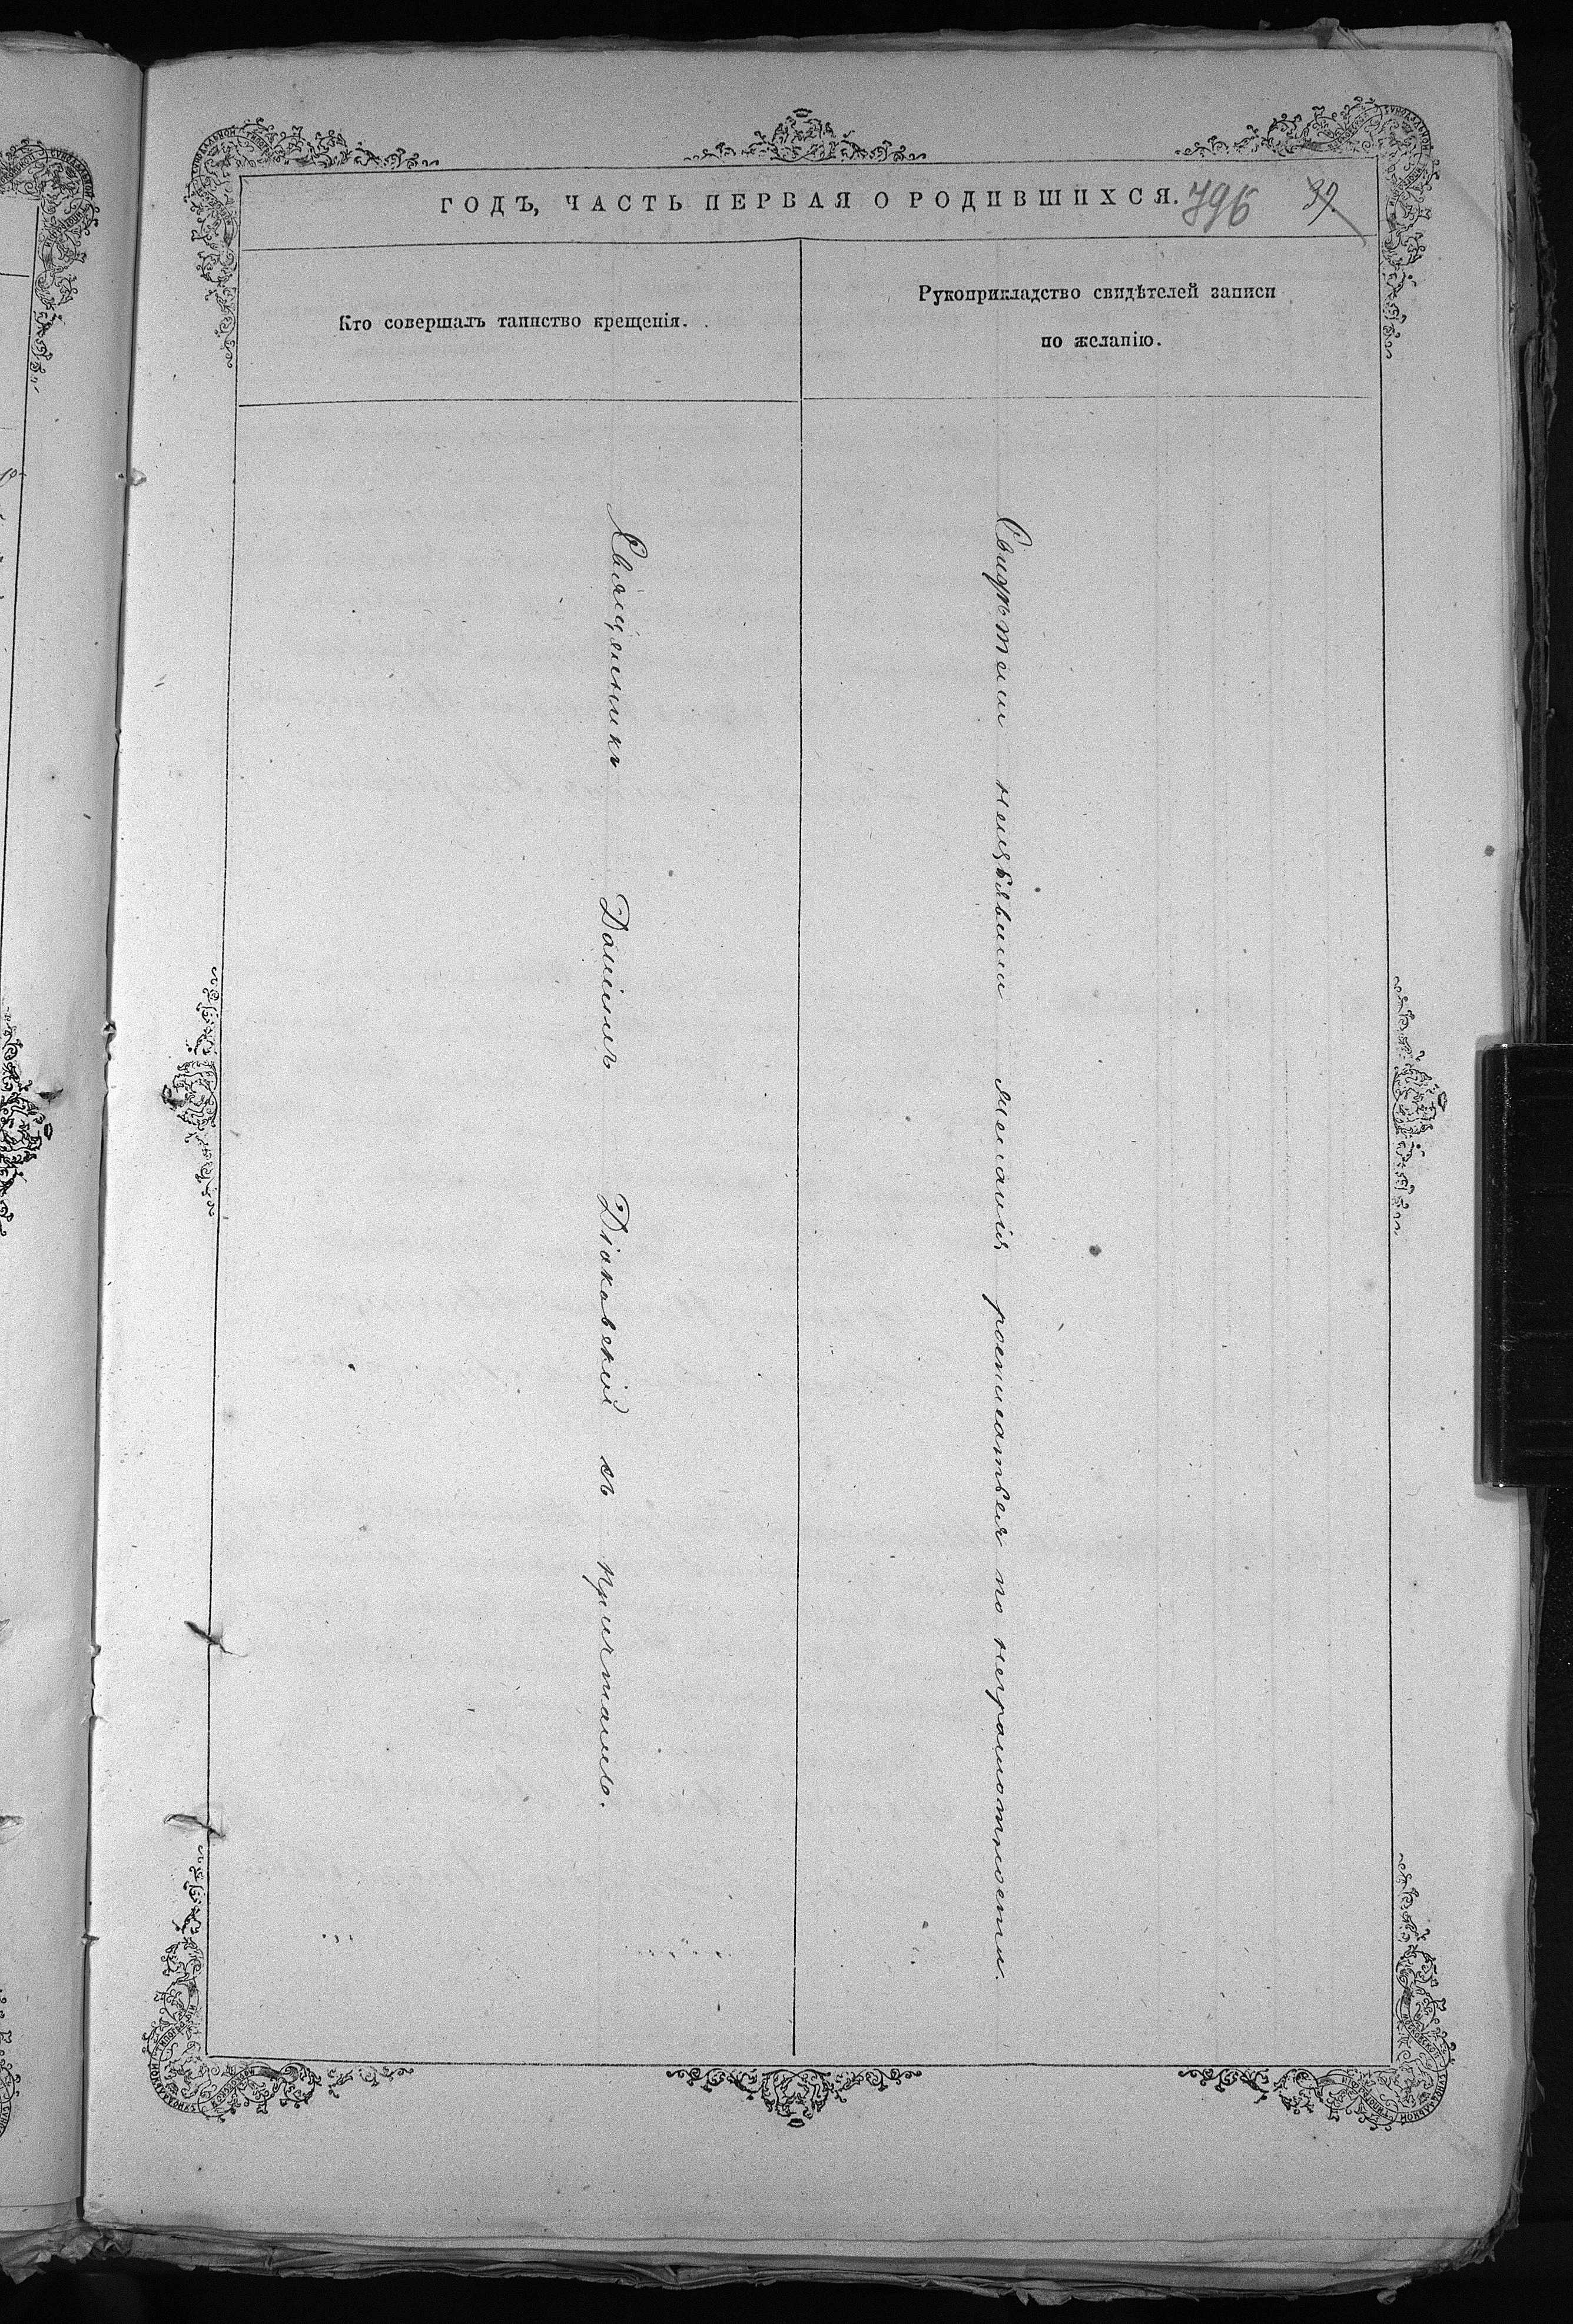 ГОДЪ, ЧАСТЬ ПЕРВАЯ О РОДИВШИХСЯ. 796 39.
Кто совершалъ таинство крещенія.
Рукоприкладство свидѣтелей записи
по желанію.
Священникъ Даніилъ Діаковскій съ причтамъ.
Свидѣтели неизъявили желанія росписаться по неграмотности.